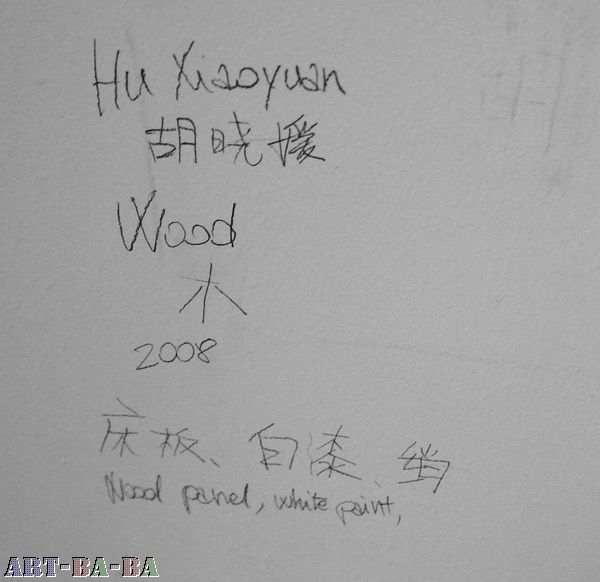 Hu Xiaoyuan
胡晓媛
Wood
木
2008
床板、白漆、绡
Wood panel, white paint,
ART-BA-BA